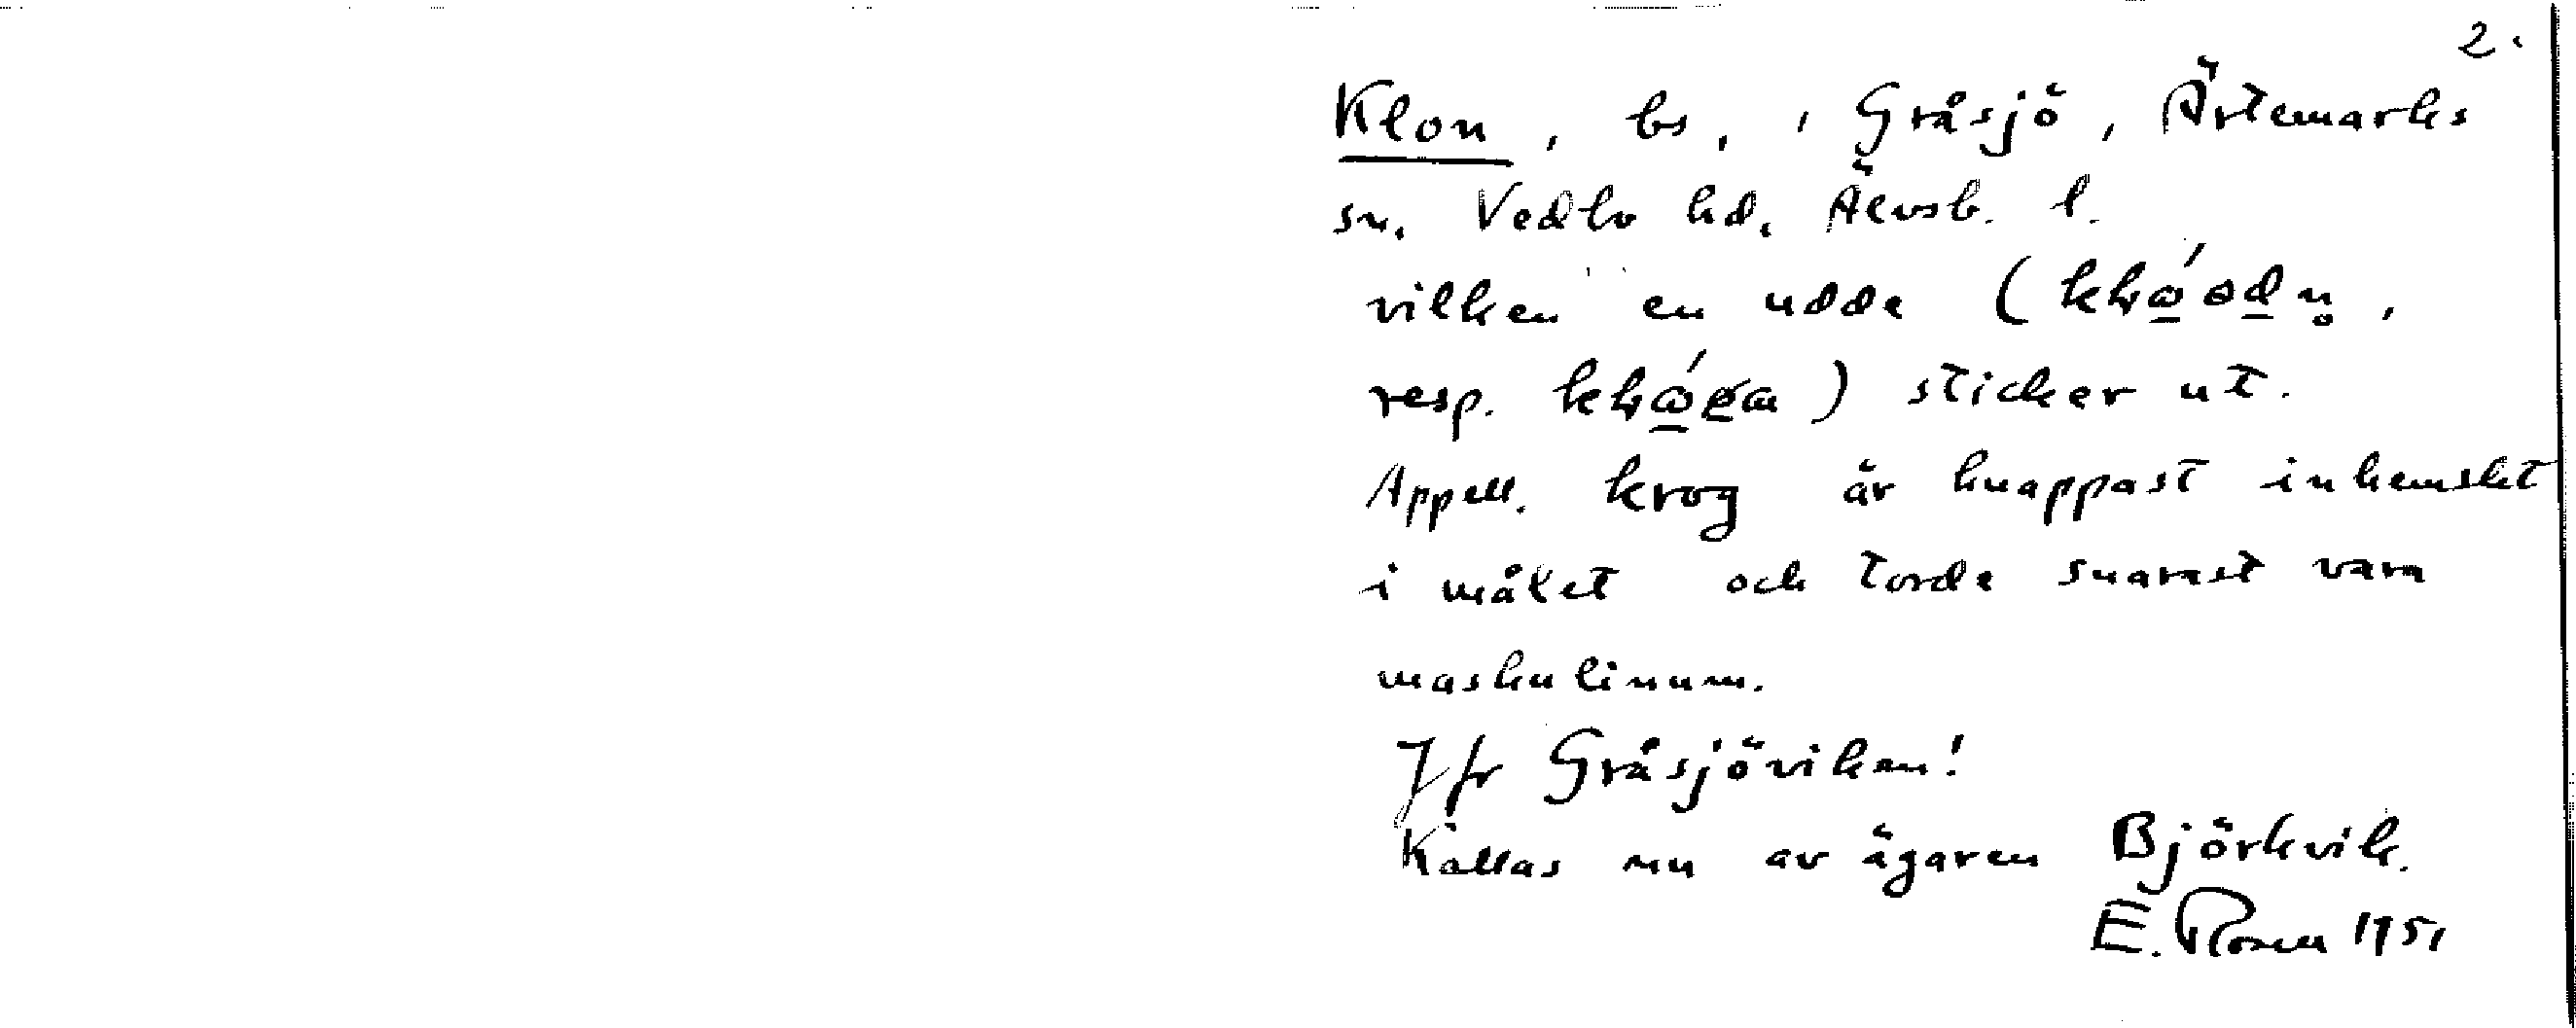 2.
Klon, bs, i Gråsjö, Ärtemarks
sn, Vedbo hd, Älvsb. l.
vilken en udde (
resp. ) sticker ut.
Appell. krog är knappast inhemskt
i målet och torde snarast vara
maskulinum.
Jfr Gråsjöviken!
Kallas nu av ägaren Björkvik.
E. Rosen 1951